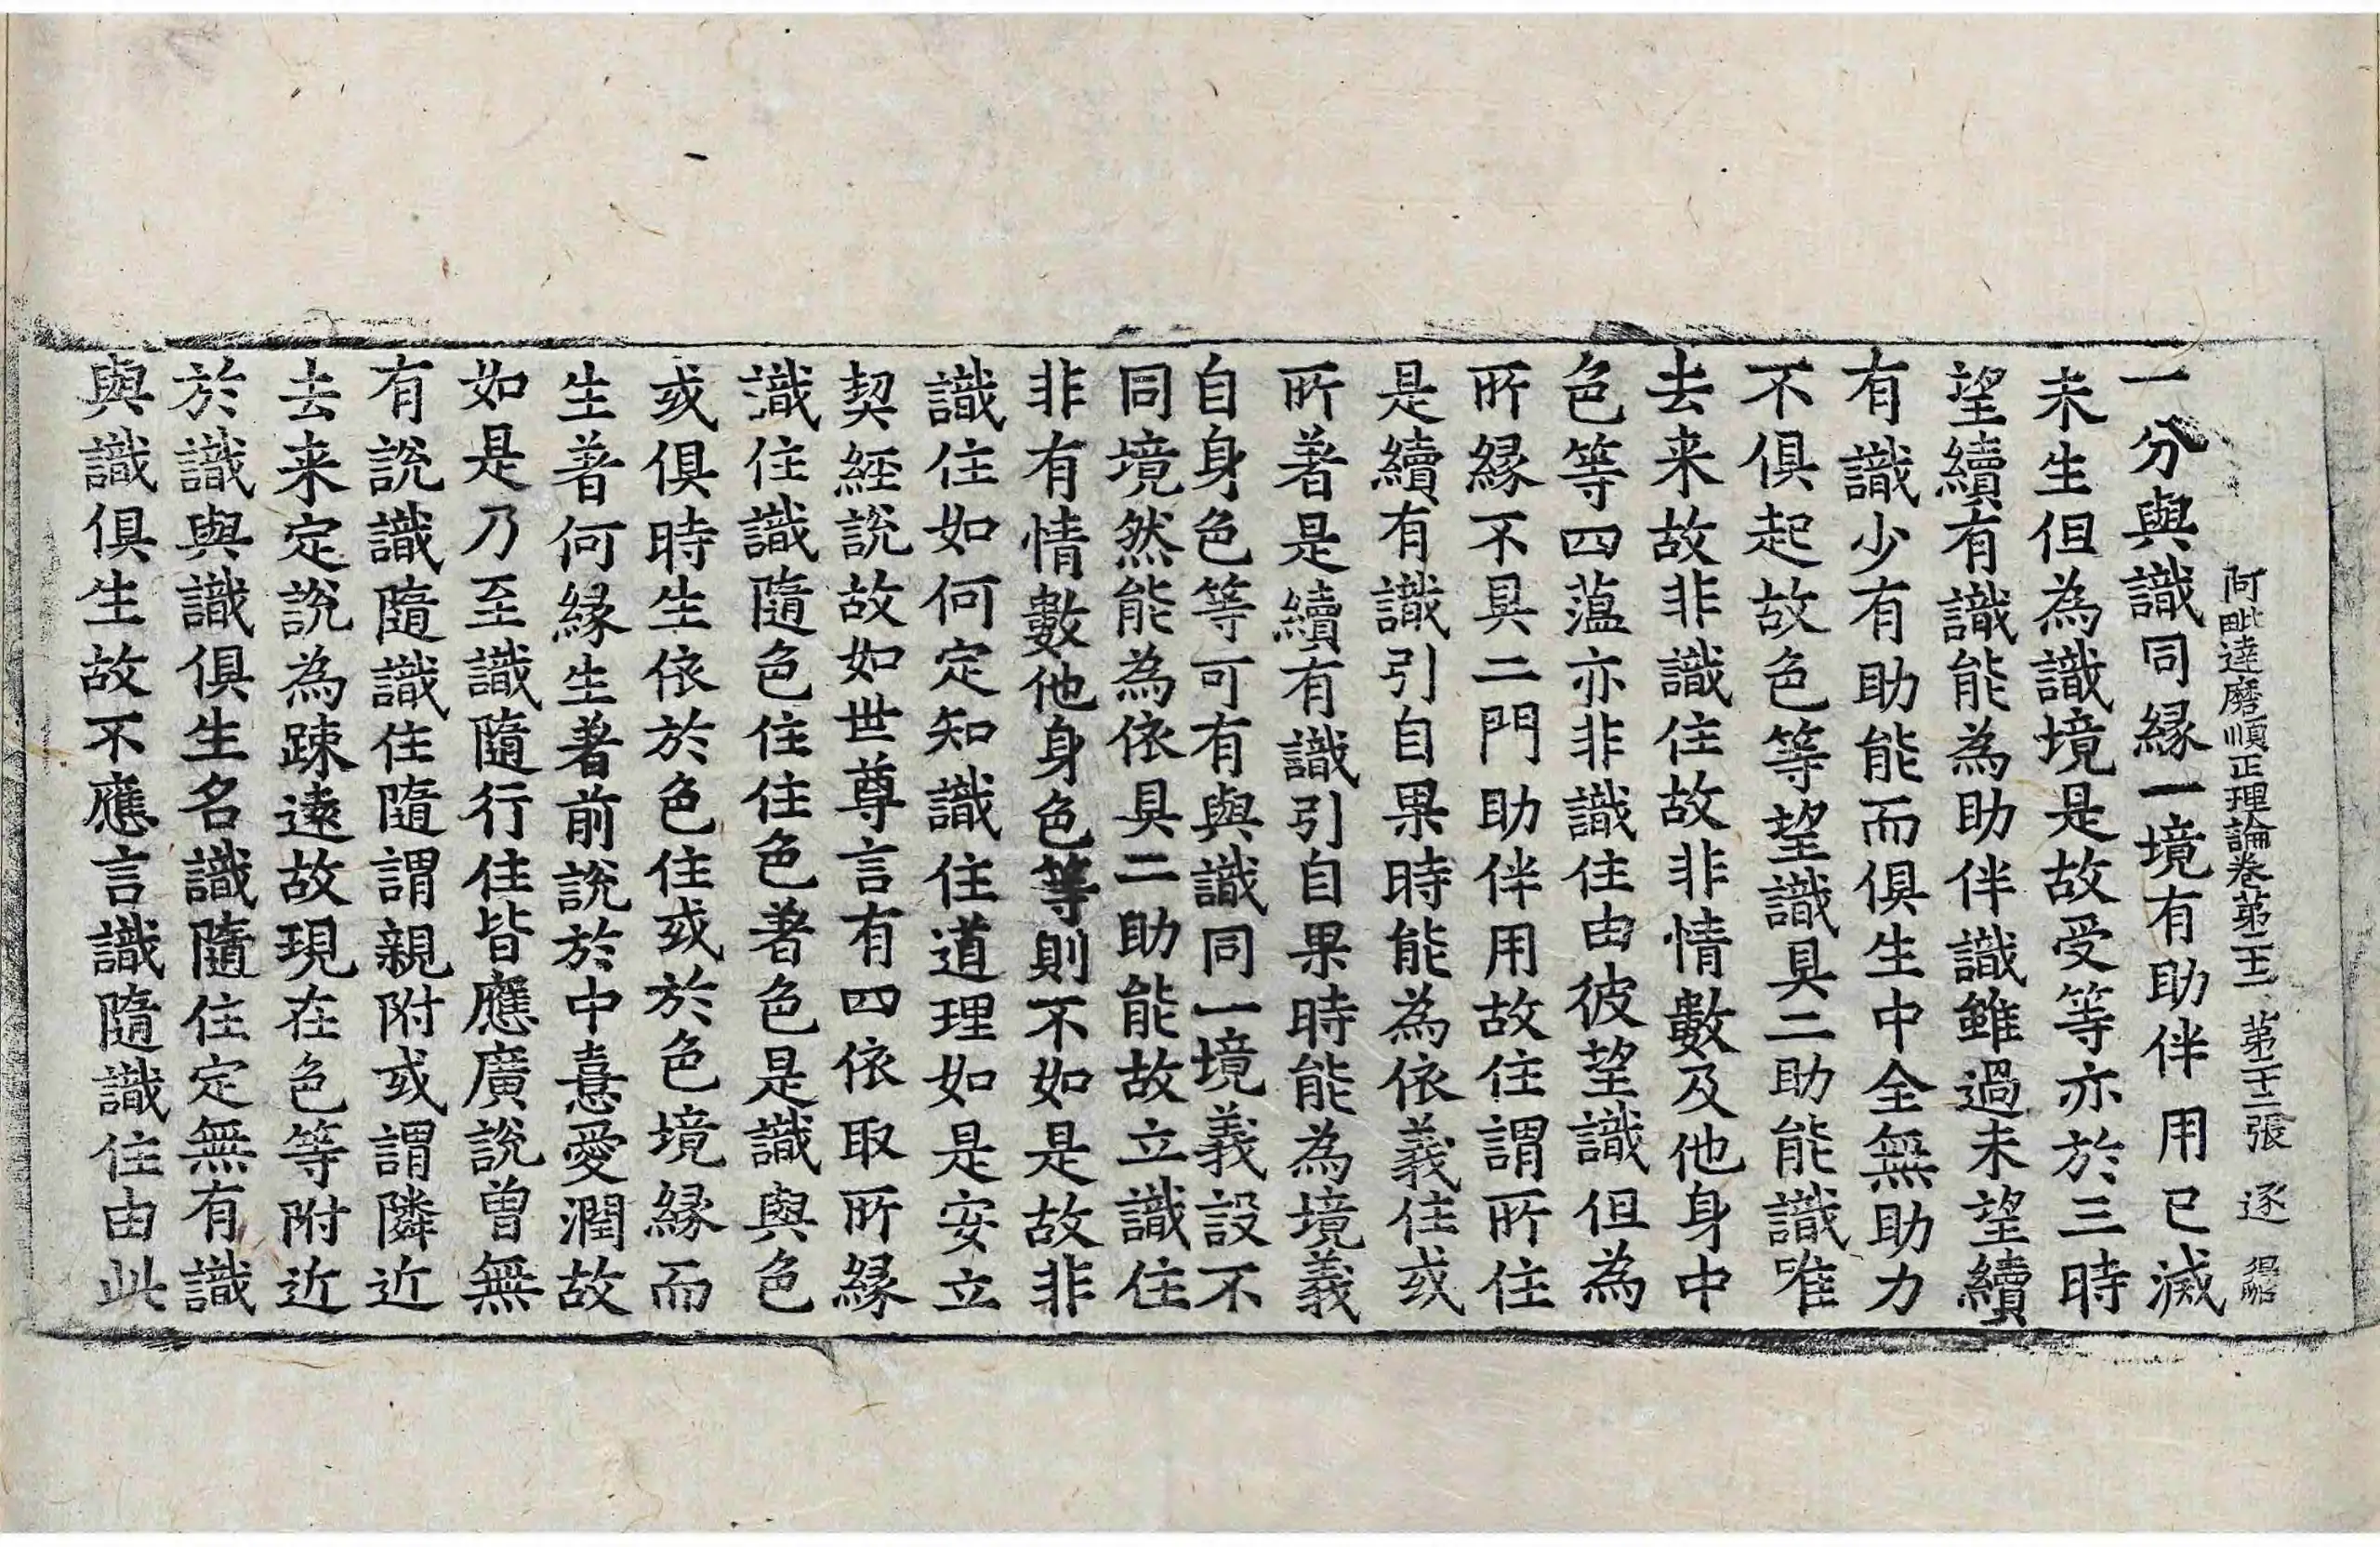 阿毗達磨順正理論卷苐二十二 苐二十二張 逐
一分與識同緣一境有助伴用已滅
未生但為識境是故受等亦於三時
望續有識能為助伴識雖過未望續
有識少有助能而俱生中全無助力
不俱起故色等望識具二助能識唯
去来故非識住故非情數及他身中
色等四薀亦非識住由彼望識但為
所緣不具二門助伴用故住謂所住
是續有識引自果時能為依義住或
所著是續有識引自果時能為境義
自身色等可有與識同一境義設不
同境然能為依具二助能故立識住
非有情數他身色等則不如是故非
識住如何定知識住道理如是安立
契経說故如世尊言有四依取所緣
識住識隨色住住色著色是識與色
或俱時生依於色住或於色境緣而
生著何緣生著前說於中憙愛潤故
如是乃至識隨行住皆應廣說曽無
有說識隨識住隨謂親附或謂隣近
去来定說為踈遠故現在色等附近
於識與識俱生名識隨住定無有識
與識俱生故不應言識隨識住由此